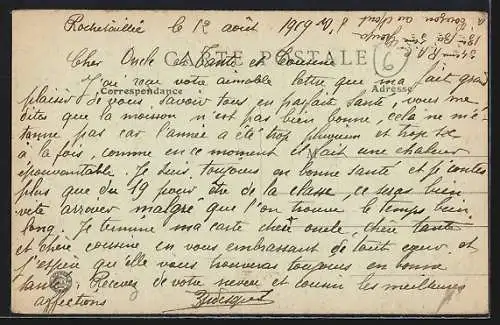 Rochetaillée le 12 août 1919
CARTE POSTALE
Correspondance
Adresse
Cher Oncle et Tante et Cousine
J'ai reçu votre aimable lettre que ma fait grand
plaisir de vous savoir tous en parfait santé, vous me
dites que la moison n'est pas bien bonne, cela ne m'é-
tonne pas car l'année a été trop pluvieux et trop sec
à la fois, comme en ce moment il fait une chaleur
épouvantable. Je suis toujours en bonne santé et je comtes
plus que du 19 pour être de la classe, ce sera bien
vite arriver malgré que l'on trouve le temps bien
long. Je termine ma carte chère oncle, chère tante
et chère cousine en vous embrassant de tout cœur et
j'espère qu'elle vous trouveras toujours en bonne
santé. Recevez de votre neveu et cousin les meilleures
affections